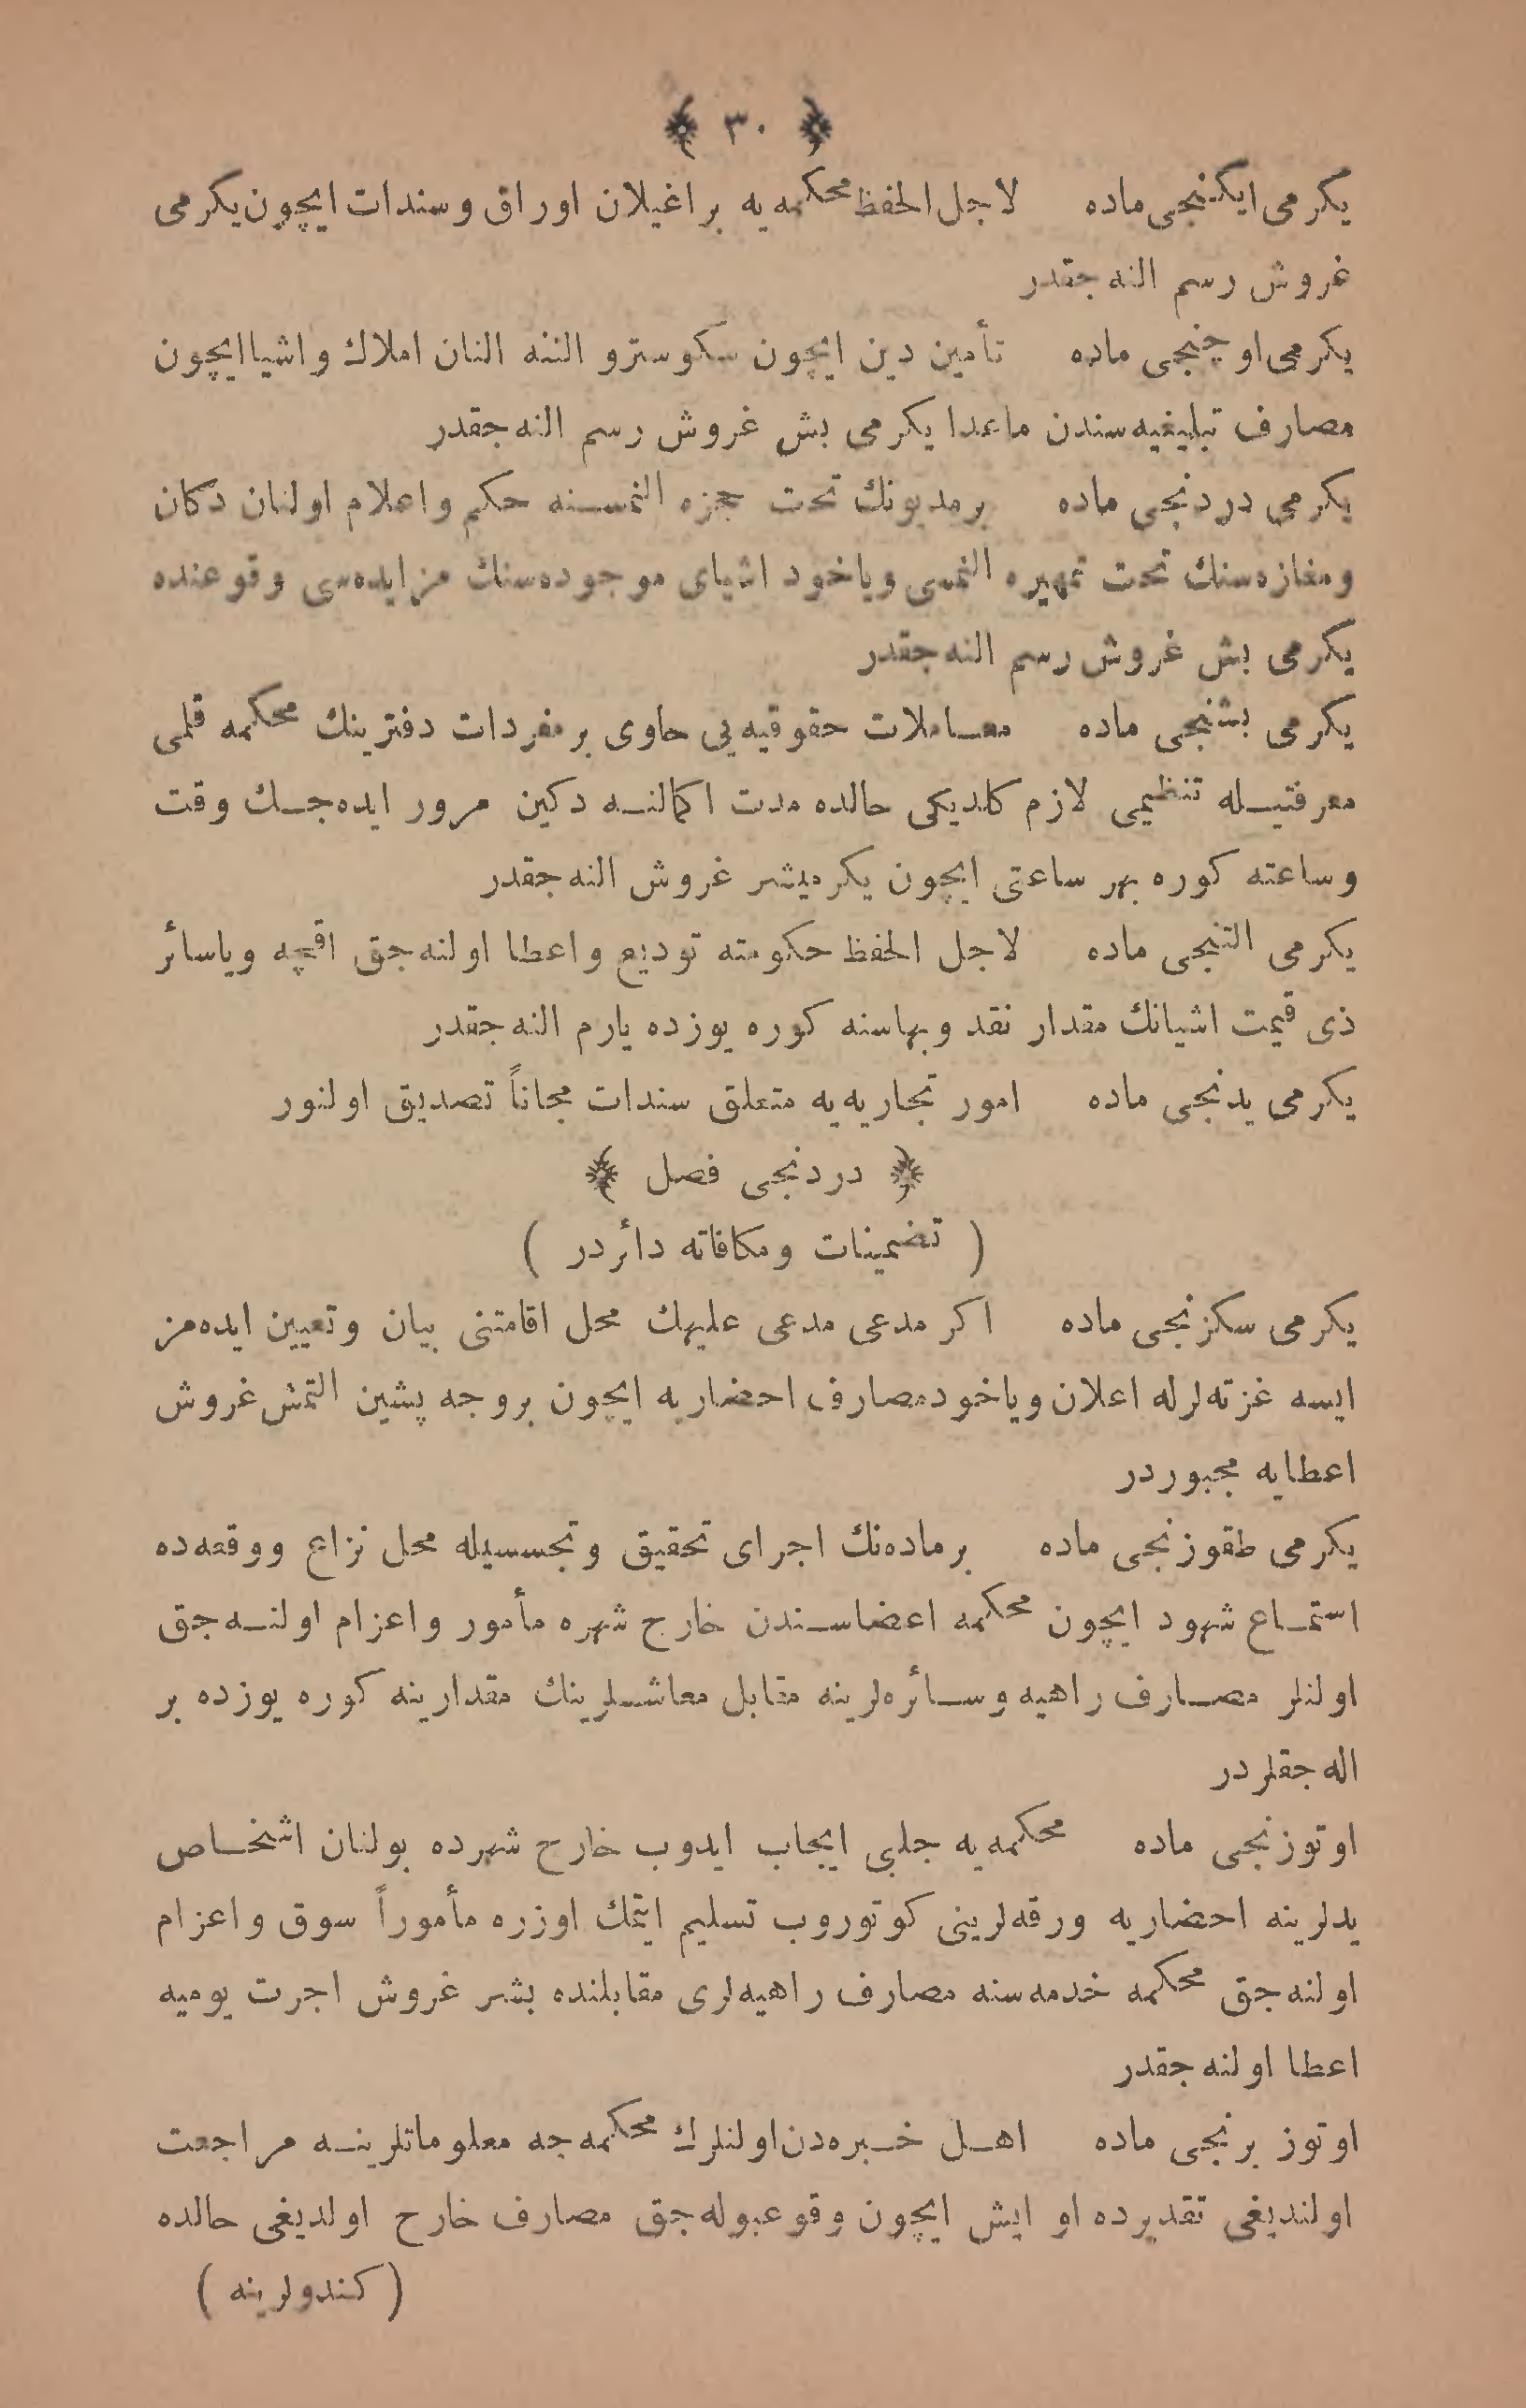 ﴿ ٣٠ ﴾
يكرمی ايكنجی ماده لاجل الحفظ محكمه‌يه براغيلان اوراق وسندات ايچون يكرمی
غروش رسم النه‌جقدر
يكرمی اوچنجی ماده تأمين دين ايچون سكوسترو الننه النان املاك واشيا ايچون
مصارف تبليغيه‌سندن ماعدا يكرمی بش غروش رسم النه‌جقدر
يكرمی دردنجی ماده برمديونك تحت حجزه النمسنه حكم واعلام اولنان دكان
ومغازه‌سنك تحت تمهيره النمسی وياخود اشيای موجوده‌سنك مزايده‌سی وقوعنده
يكرمی بش غروش رسم النه‌جقدر
يكرمی بشنجی ماده معاملات حقوقيه‌يی حاوی برمفردات دفترينك محكمه قلمی
معرفتيله تنظيمی لازم كلديكی حالده مدت اكمالنه دكين مرور ايده‌جك وقت
وساعته كوره بهر ساعتی ايچون يكرميشر غروش النه‌جقدر
يكرمی التنجی ماده لاجل الحفظ حكومته توديع واعطا اولنه‌جق اقچه وياسائر
ذی قيمت اشيانك مقدار نقد وبهاسنه كوره يوزده يارم النه‌جقدر
يكرمی يدنجی ماده امور تجاريه‌يه متعلق سندات مجاناً تصديق اولنور
﴿ دردنجی فصل ﴾
( تضمينات ومكافاته دائردر )
يكرمی سكزنجی ماده اكر مدعی مدعی عليهك محل اقامتنی بيان وتعيين ايده‌مز
ايسه غزته‌لرله اعلان وياخود مصارف احضاريه ايچون بروجه پشين التمش غروش
اعطايه مجبوردر
يكرمی طقوزنجی ماده برماده‌نك اجرای تحقيق وتجسسيله محل نزاع ووقعه‌ده
استماع شهود ايچون محكمه اعضاسندن خارج شهره مأمور واعزام اولنه‌جق
اولنلر مصارف راهيه وسائره‌لرينه مقابل معاشلرينك مقدارينه كوره يوزده بر
اله‌جقلردر
اوتوزنجی ماده محكمه‌يه جلبی ايجاب ايدوب خارج شهرده بولنان اشخاص
يدلرينه احضاريه ورقه‌لرينی كوتوروب تسليم ايتمك اوزره مأموراً سوق واعزام
اولنه‌جق محكمه خدمه‌سنه مصارف راهيه‌لری مقابلنده بشر غروش اجرت يوميه
اعطا اولنه‌جقدر
اوتوز برنجی ماده اهل خبره‌دن اولنلرك محكمه‌جه معلوماتلرينه مراجعت
اولنديغی تقديرده او ايش ايچون وقوعبوله‌جق مصارف خارج اولديغی حالده
( كندولرينه )